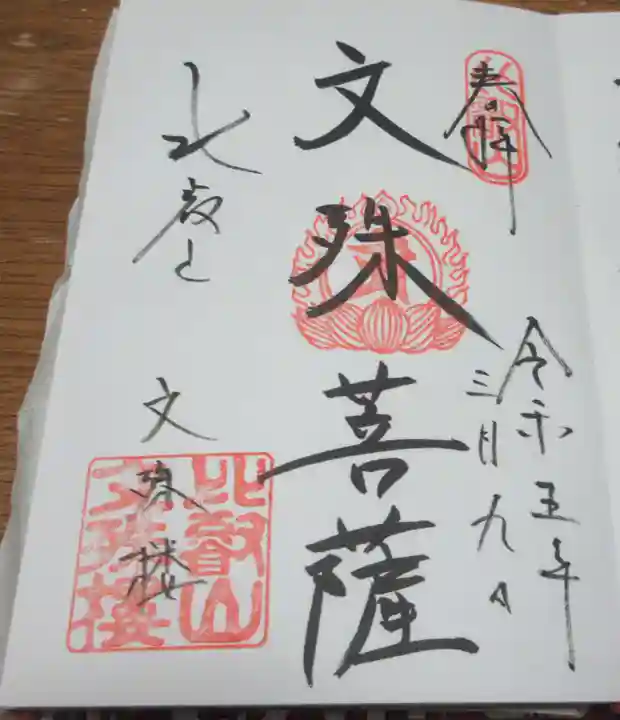 奉拝
令和五年
三月九日
文殊菩薩
比叡山
文殊楼
比叡山
文殊楼